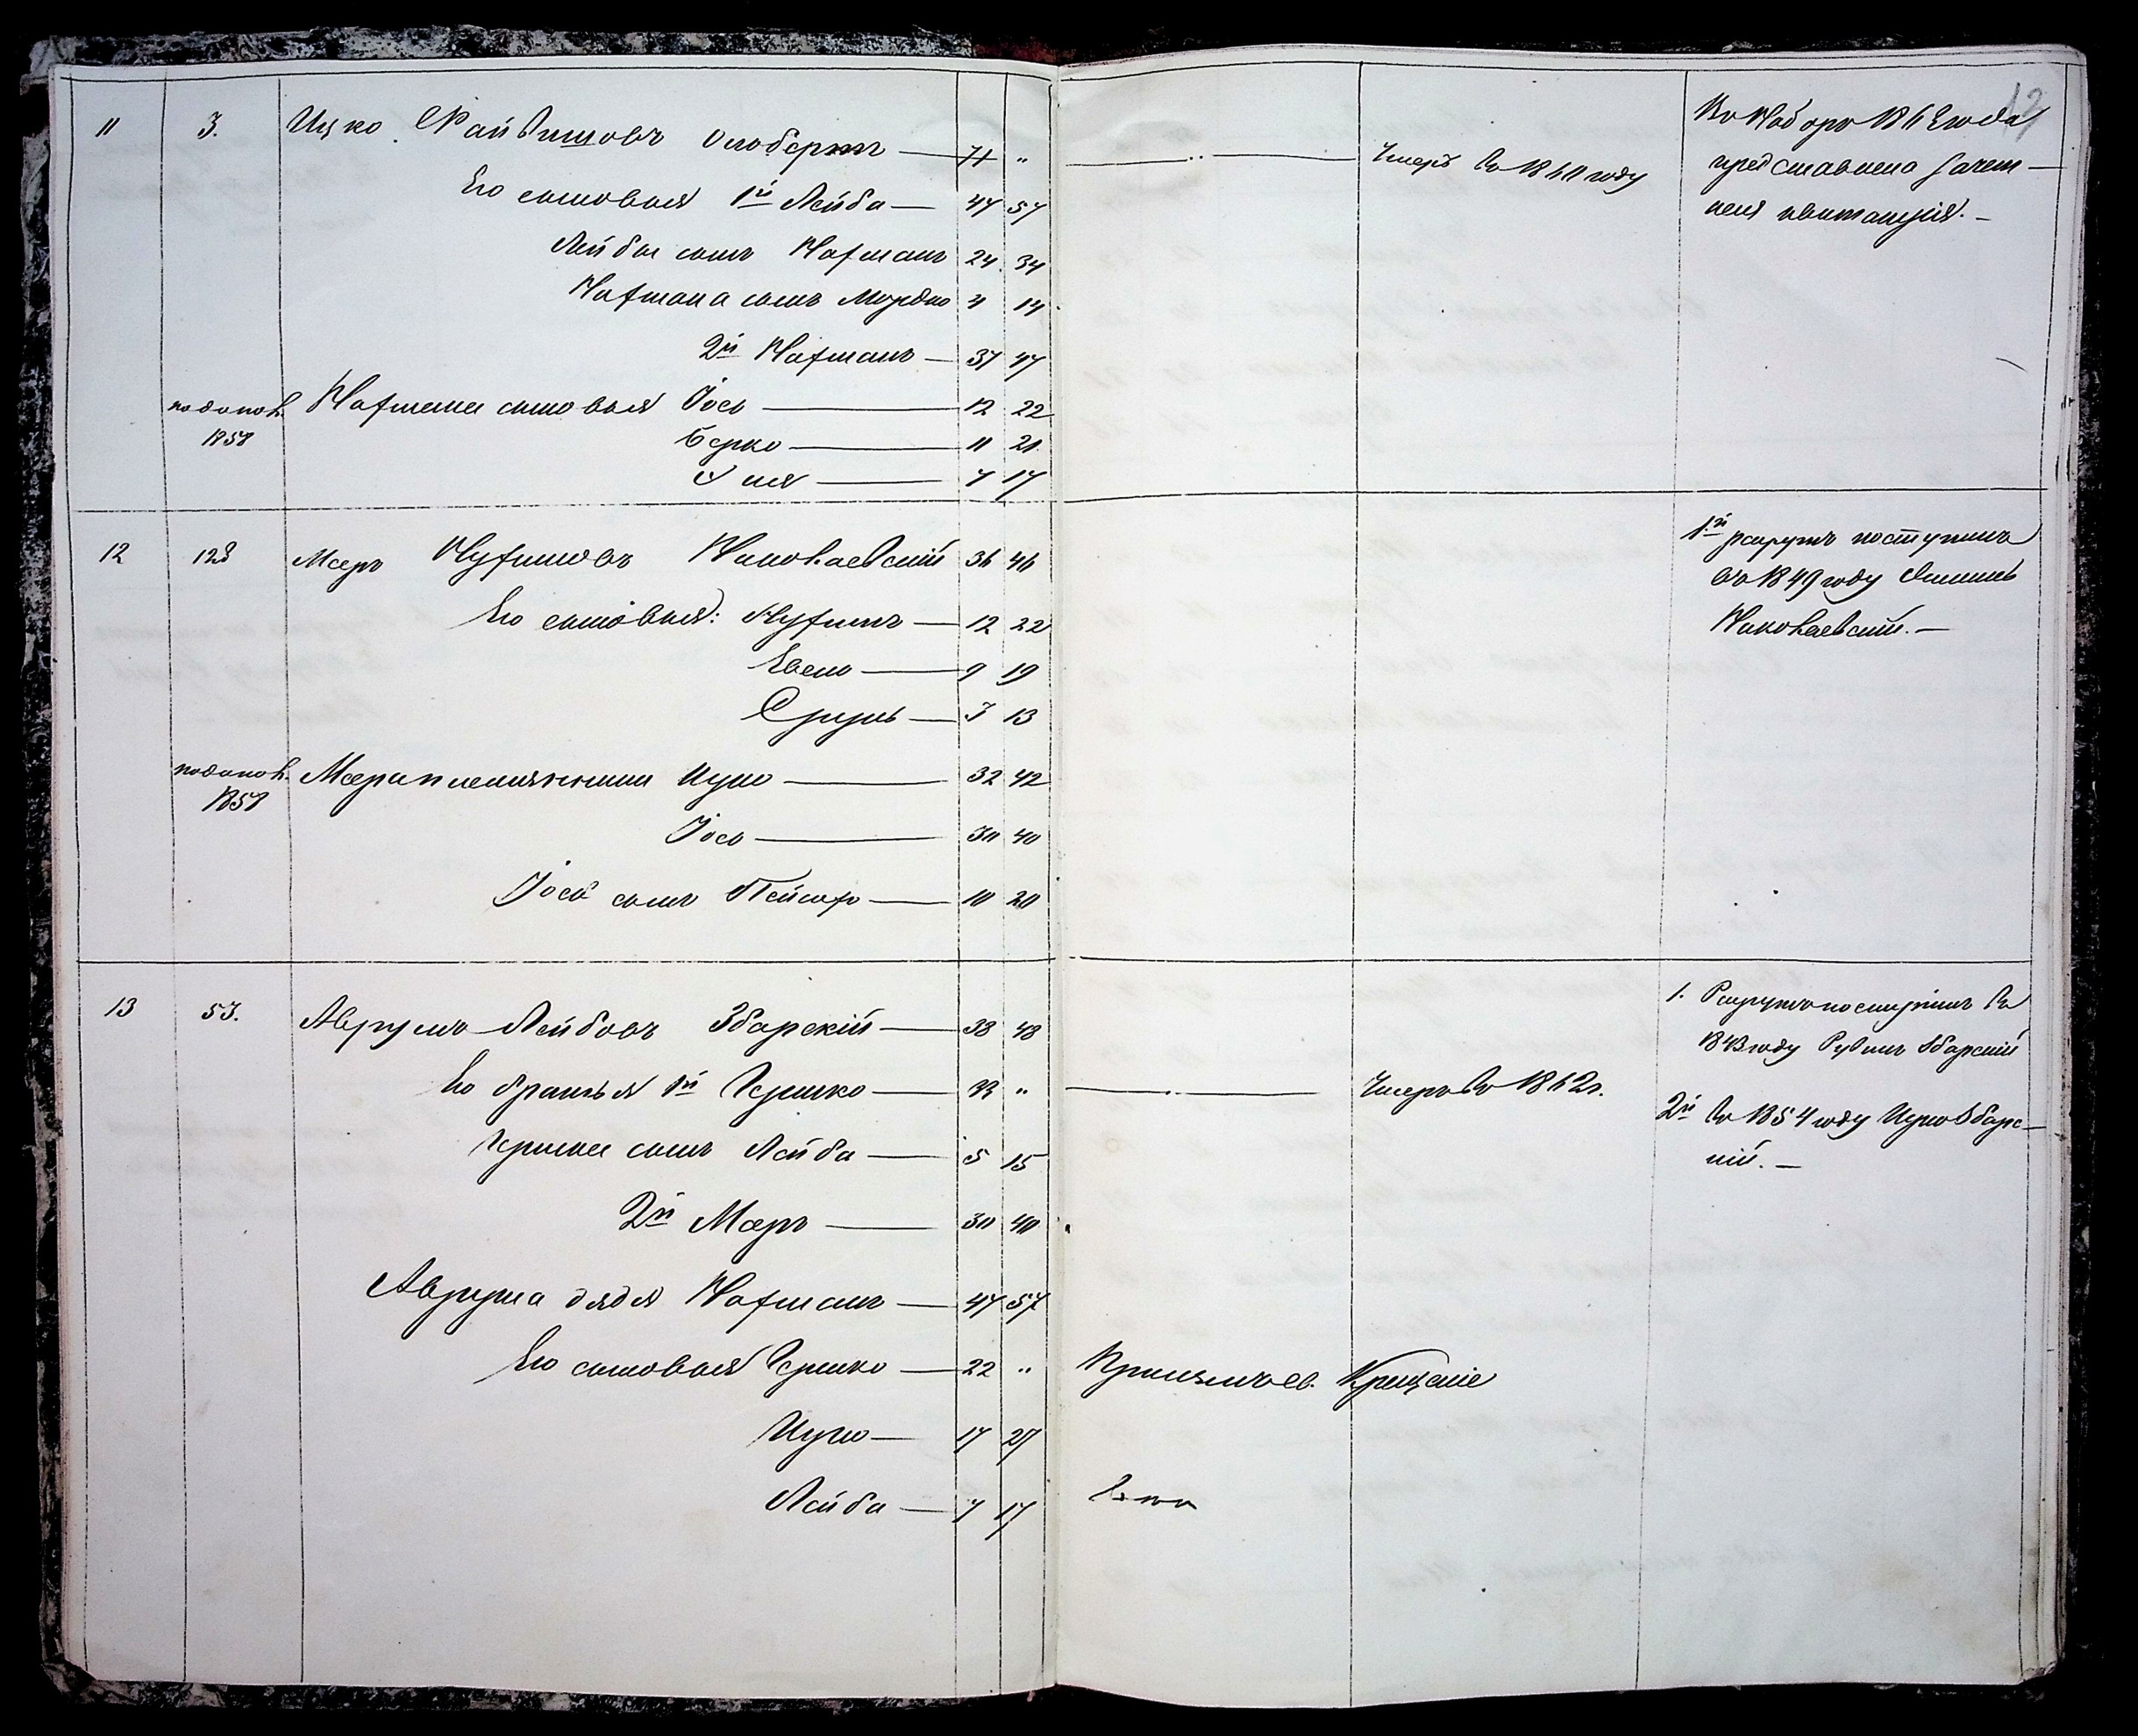 12
11 3. Ицко Файвишовъ — 71 "
Умеръ въ 1860 году
Въ Наборъ 186 года
представлена зачет-
ная квитанція. —
Его сыновья 1й Лейба — 47 57
Лейбы сынъ Нахманъ 24 34
Нахмана сынъ Мордко 4 14
2й Нахманъ — 37 47
по допол. 1858 Нахмана сыновья Іось — 12 22
Берко — 11 21
7 17
12 128 Мееръ Нухимовъ 36 46
1й рекрутъ поступилъ
въ 1849 году
Его сыновья: Нухимъ — 12 22
9 19
Сруль — 3 13
по допол. 1858 Меера племянники Ицко — 32 42
Іось — 30 40
Іося сынъ Пейсахъ — 10 20
13 53. Аврумъ Лейбовъ Збарскій — 38 48
1. Рекрутъ поступилъ въ
1843 году Рувинъ Збарскій
Его братья 1й Гершко — 33 "
Умеръ въ 1862 г.
2й въ 1854 году Ицко Збарс-
кій. —
Гершка сынъ Лейба — 5 15
2й Мееръ — 30 40
Аврума дядя Нахманъ — 47 57
Его сыновья Гершко — 22 " Принялъ св. Крещеніе
Ицко — 17 27
Лейба — 7 17